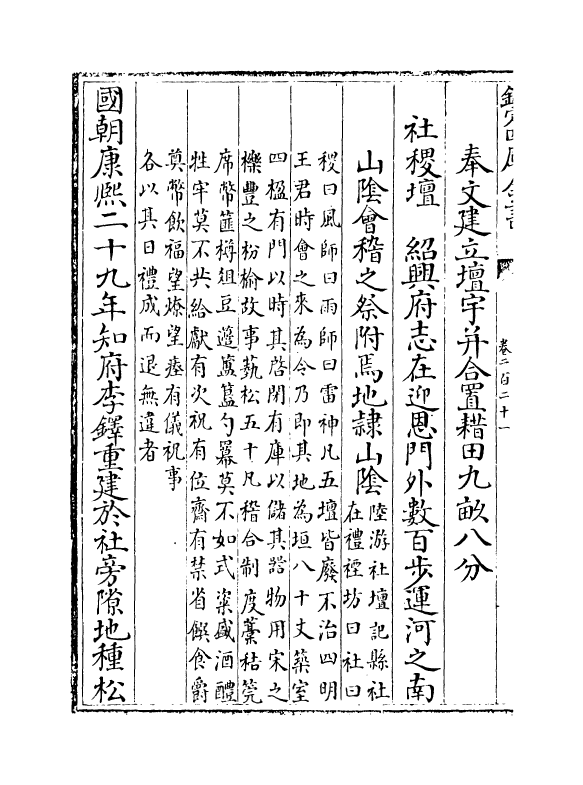 欽定四庫全書
卷二百二十一
奉文建立壇宇并合置耤田九畝八分
社稷壇　紹興府志在迎恩門外數百步運河之南
山陰會稽之祭附焉地隷山陰
陸游社壇記縣社
在禮禋坊曰社曰
稷曰風師曰雨師曰雷神凡五壇皆廢不治四明
王君時會之來為令乃即其地為垣八十丈築室
四楹有門以時其啓閉有庫以儲其器物用宋之
櫟豐之枌榆故事蓺松五十凡稽合制度藁秸筦
席幣篚樽俎豆籩簠簋勺冪莫不如式粢盛酒醴
牲牢莫不共給獻有次祝有位齋有禁省饌食爵
奠幣飲福望燎望瘞有儀祝事
各以其日禮成而退無違者
國朝康熙二十九年知府李鐸重建於社旁隙地種松